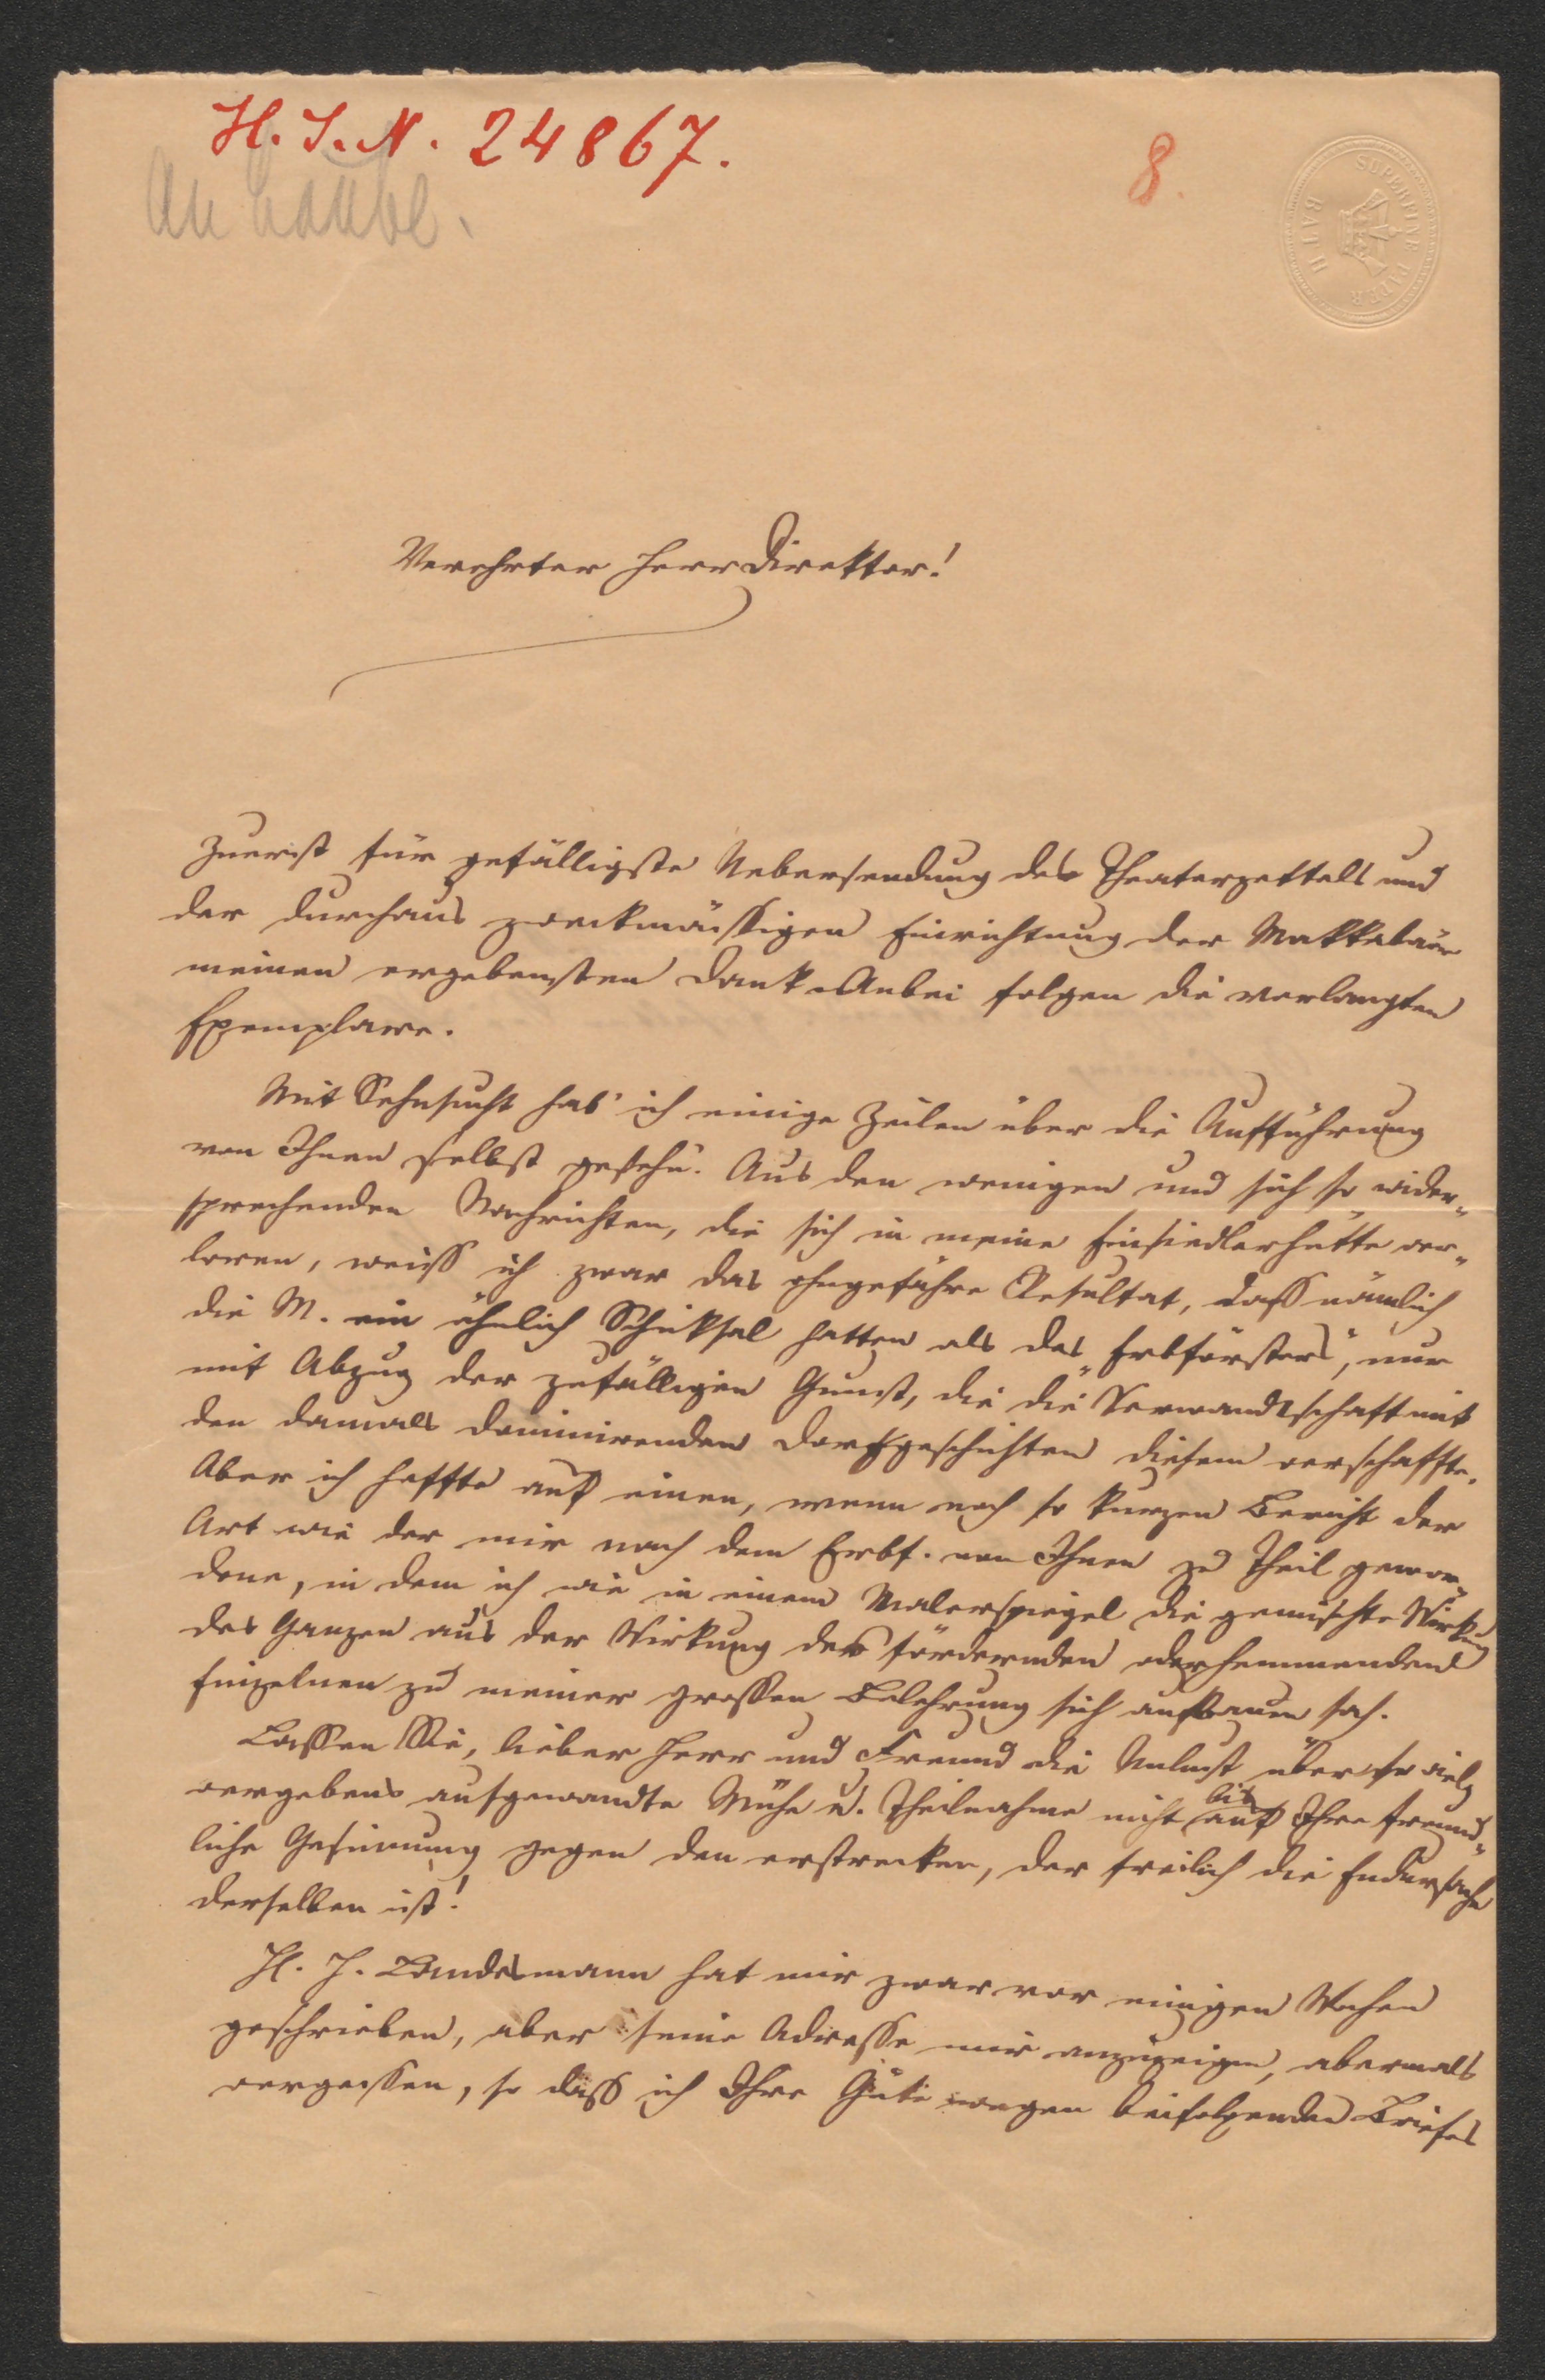 H. I. N. 24867.
8.
An Laube.
SUPERFINE PAPER
BATH
Verehrter Herr Direktor!
Zuerst für gefälligste Uebersendung des Theaterzettels und
der durchaus zweckmässigen Einrichtung der Makkabäer
meinen ergebensten Dank. Anbei folgen die verlangten
Exemplare.
Mit Sehnsucht hab' ich einige Zeilen über die Aufführung
von Ihnen selbst gesehn. Aus den wenigen und sich so wider-
sprechenden Nachrichten, die sich in meine Einsiedlerhütte ver-
loren, weiss ich zwar das ohngefähre Resultat, dass nämlich
die M. ein ähnlich Schicksal hatten als das „Erbförsters“, nur
mit Abzug der zufälligen Gunst, die die Verwandtschaft mit
den damals dominirenden Dorfgeschichten diesem verschaffte.
Aber ich hoffte auf einen, wenn noch so kurzen Bericht der
Art wie der mir nach dem Erbf. von Ihnen zu Theil gewor-
dene, in dem ich wie in einem Malerspiegel die gemischte Wirkung
des Ganzen aus der Wirkung des fördernden oder hemmenden
Einzelnen zu meiner grossen Belehrung sich aufbauen sah.
Lassen Sie, lieber Herr und Freund die Unlust über so viele
vergebens aufgewandte Mühe u. Theilnahme nicht bis auf Ihre freund-
liche Gesinnung gegen den erstrecken, der freilich die Endursache
derselben ist!
H. H. Landesmann hat mir zwar vor einigen Wochen
geschrieben, aber seine Adresse mir anzuzeigen, abermals
vergessen, so dass ich Ihre Güte wegen beifolgenden Briefes